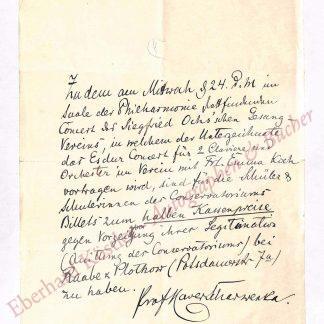 Zu dem am Mittwoch d 24. d. M im
Saale der Philharmonie stattfindenden
Concert des Siegfried Ochs'schen Gesang-
Vereins, in welchem der Unterzeichnete
das Esdur Concert für 2 Claviere und
Orchester im Verein mit Frl. Emma Koch
vortragen wird, sind für die Schüler &
Schülerinnen des Conservatoriums
Billets zum halben Kassenpreise
gegen Vorzeigung ihrer Legitimation
(Quittung des Conservatoriums) bei
Raabe & Plothow (Potsdamerstr 7a)
zu haben.
Prof Xaver Scharwenka
Eberhard Köstler Autographen & Bücher